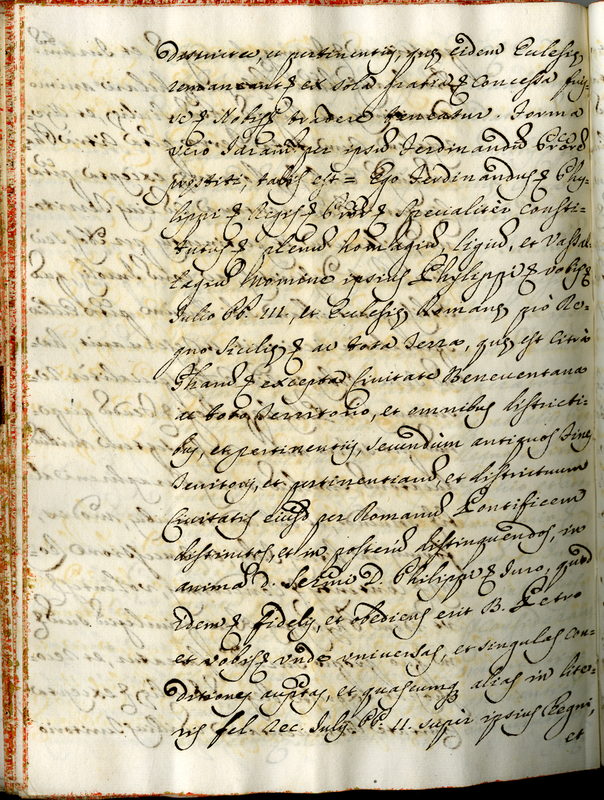 Districtu, et pertinentijs, quę eidem Eclesię
remaneant & ex sola gratia & Concessa fuis-
se & Nobis & tradere teneatur. Forma
vero Juram. per ipsū Ferdinandū Prōrē
prestiti, talis est = Ego Ferdinandus & Phy-
lippi & Regis & Prōr & Specialiter Consti-
tutus & plenū homagiū, ligiū, et Vassal-
lagiū Nomine ipsius Phylippi & vobis &
Julio PP. III, et Eclesię Romanę pro Re-
gno Sicilię & ac tota Terra, quę est Citra
Pharū & excepta Civitate Beneventana
ac toto Territorio, et omnibus districti-
bus, et pertinentijs, secundum antiquos fines
Territorij, et pertinentiarū, et districtuum
Civitatis eiusd. per Romanū Pontificem
distinctos, et in posterū distinguendos, in
animā D. Sermi D. Philippi & Juro, quod
Idem & fidelis, et obediens erit B. Petro
et vobis & unde universas, et singulas Con-
ditiones auditas, et quascumq. alias in lite-
ris fel. Rec. Julij PP. II. super ipsius Regni,
et